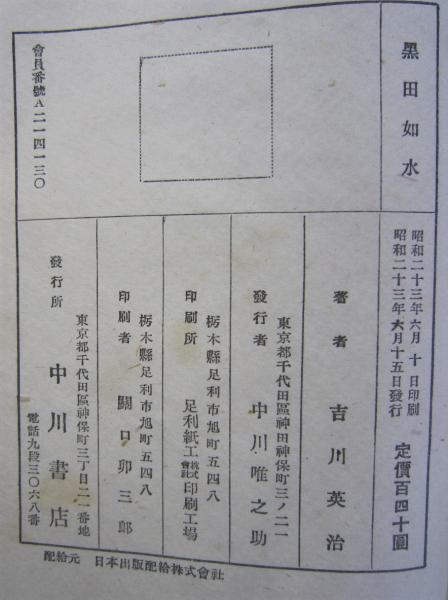 黑田如水
昭和二十三年六月十日印刷
昭和二十三年六月十五日發行
定價百四十圓
著者 吉川英治
東京都千代田區神田神保町三ノ二一
發行者 中川唯之助
栃木縣足利市旭町五四八
印刷所 足利紙工株式會社印刷工場
栃木縣足利市旭町五四八
印刷者 關口卯三郎
東京都千代田區神保町三丁目二一番地
發行所 中川書店
電話九段三〇六八番
會員番號A二一四一三〇
配給元 日本出版配給株式會社